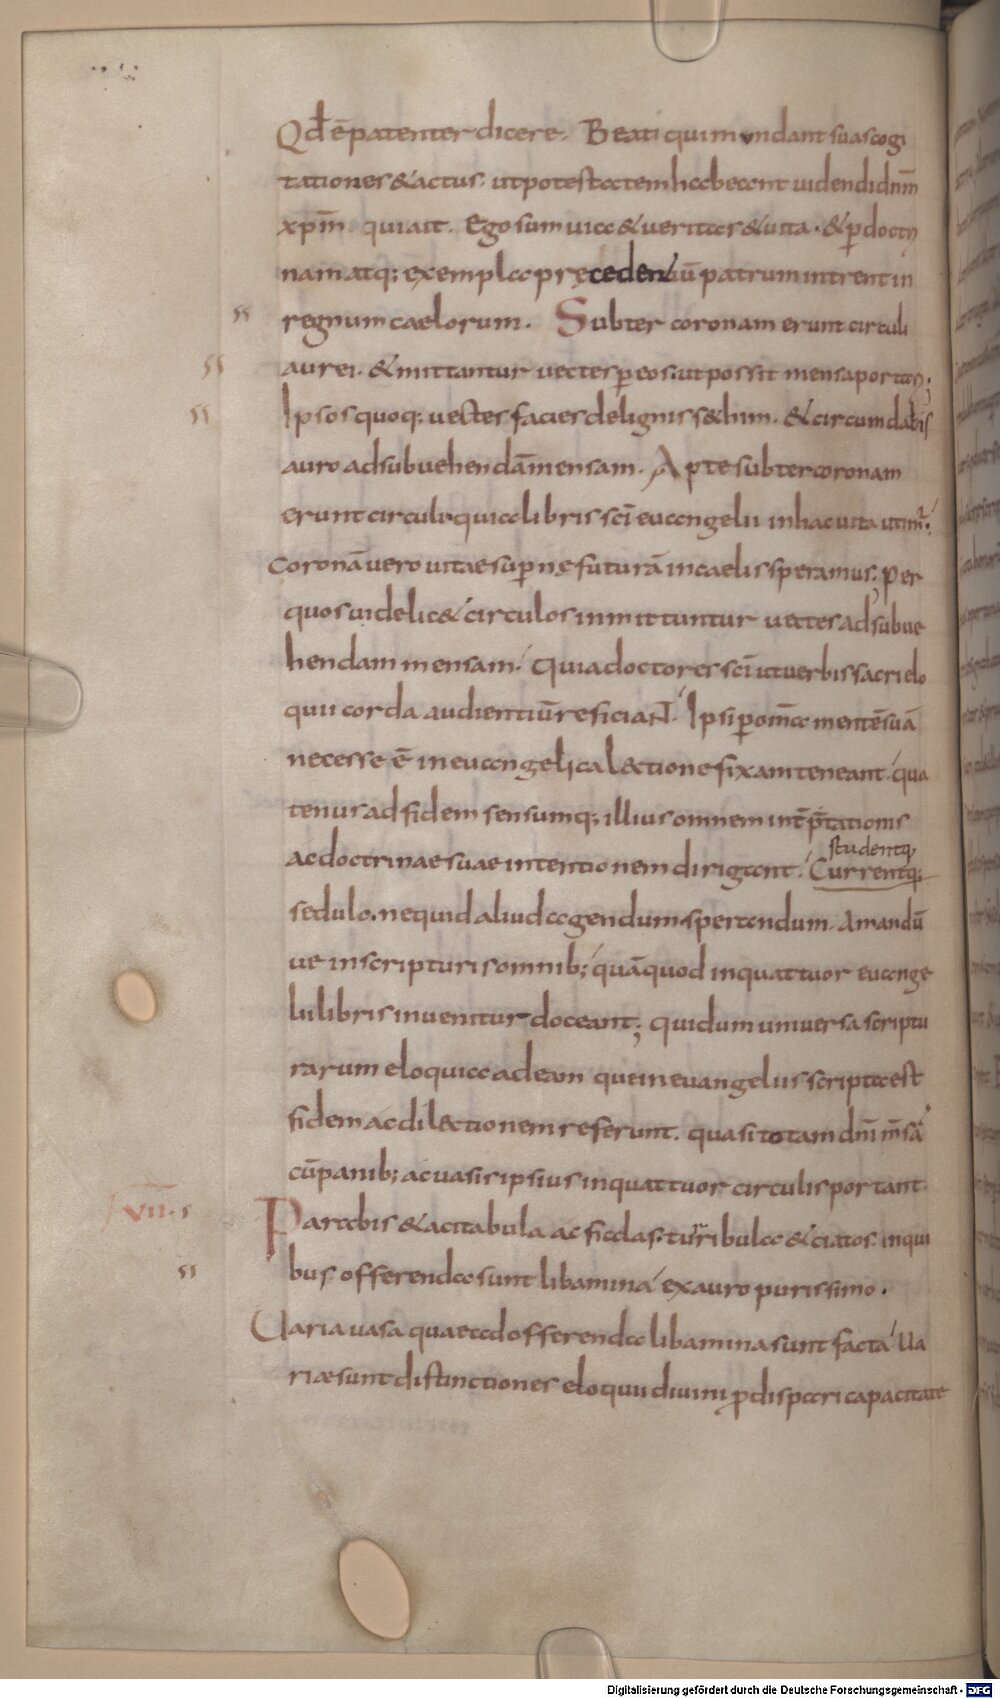 Qđ ē patenter dicere. Beati qui mundant suas cogi
tationes & actus. ut potestatem habeant uidendi dnm̄
xpm̄. quia ait. Ego sum uia & ueritas & uita. & p̱ doctri
nam atq; exempla pręcedentiū patrum intrent in
regnum caelorum. Subter coronam erunt circuli
aurei. & mittantur uectes p̱ eos. ut possit mensa portari;
Ipsos quoq; uectes facies de lignis s&him. & circumdabis
auro ad subuehendā mensam. Apte subter coronam
erunt circuli. quia libris sc̄i euangelii in hac uita utimr̄.
coronā uero uitae sup̱nę futurā in caelis speramus; Per
quos uidelic& circulos inmittuntur uectes ad subue
hendam mensam. Quia doctores sc̄i ut uerbis sacri elo
quii corda audientiū reficiant. Ipsi p̱ omīa mentē suā
necesse ē in euangelica lectione fixam teneant. qua
tenus ad fidem sensumq; illius omnem int̄p̄tationis
ac doctrinae suae intentionem dirigant. Currentq;
studentq;
sedulo. ne quid aliud agendum. sperandum. amandū
ue in scripturis omnib; quā quod in quattuor euange
lii libris inuenitur doceant; qui dum uniuersa scriptu
rarum eloquia ad eam quę in euangeliis scripta est
fidem ac dilectionem referunt. quasi totam dn̄i m̄sā
cū panib; ac uasis ipsius in quattuor circulis portant.
VII.
Parabis & acitabula ac fialas. turibula & ciatos. in qui
bus offerenda sunt libamina ex auro purissimo.
Uaria uasa quae ad offerenda libamina sunt facta Ua
riae sunt distinctiones eloquii diuini p̱ dispari capacitate
Digitalisierung gefördert durch die Deutsche Forschungsgemeinschaft - DFG